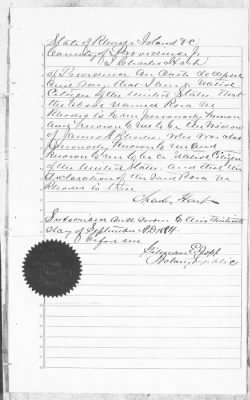 State of Rhode Island &c.
County of Providence
I, Charles Hart
of Providence on Oath depose
and say, that I am a Native
Citizen of the United States, that
the above named Rosa M
Rhodes is to me personally known
and known to me to be the
of James A Rhodes, who was also
personally known to me and
known to me to be a Native Citizen
of the United States and that the
declaration of the said Rosa M
Rhodes is true
Charles Hart
Subscribed and sworn to this thirteenth
day of September A.D. 1884
before me
Notary Public